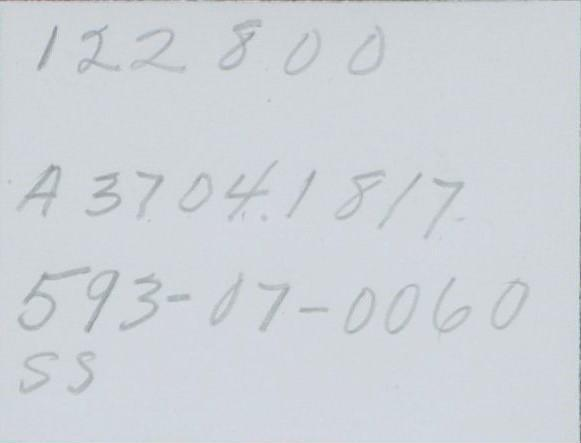 122800
A37041817
593-07-0060
SS